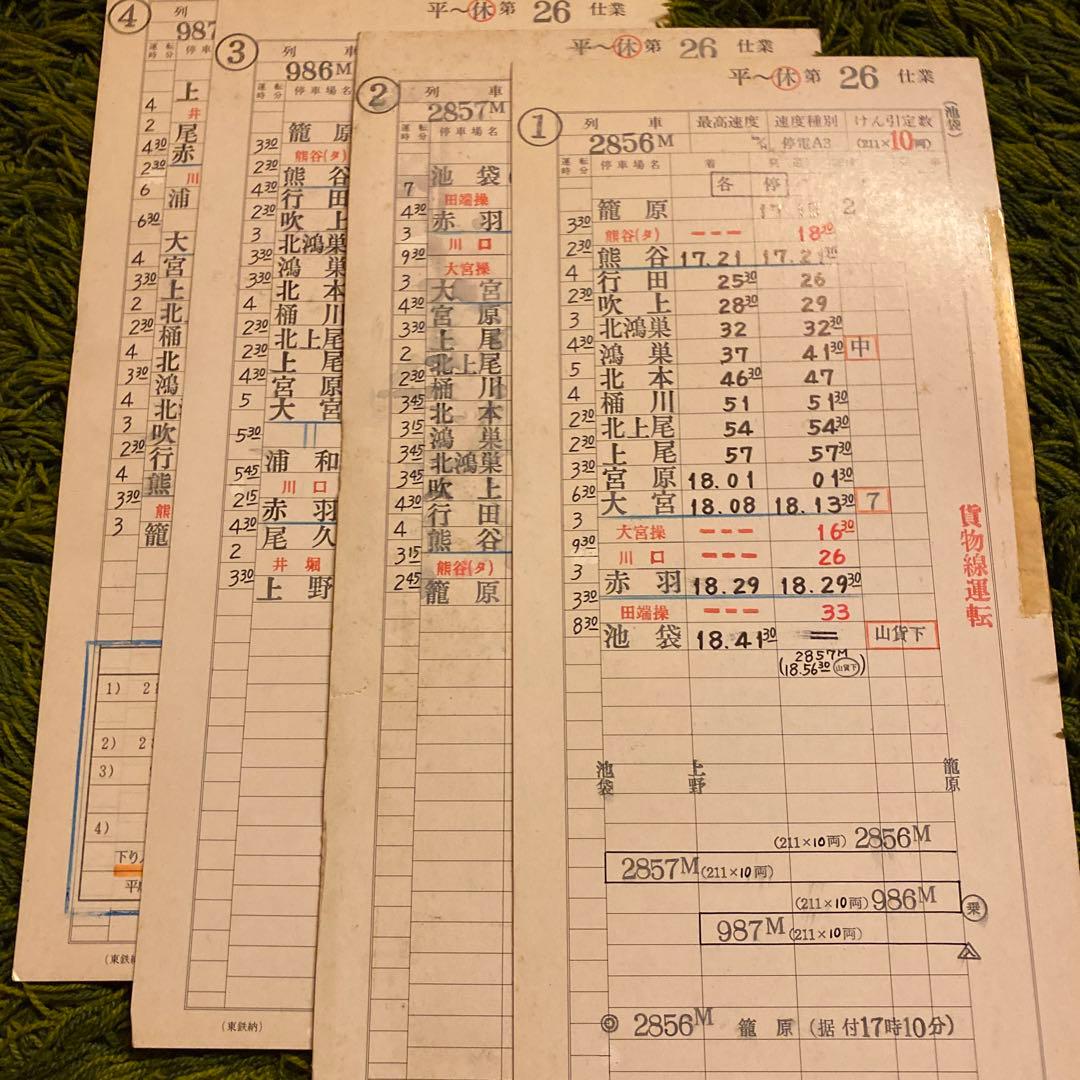 ④
列
987
運転 停車
時分
上
4 井
2 尾
4 赤
2³⁰ 川
6 浦
6³⁰ 大
4 宮
3³⁰ 上
2 北
2³⁰ 桶
4 北
3³⁰ 鴻
4 北
3 吹
2³⁰ 行
4 熊
3³⁰ 熊
3 籠
1) 2
2) 2
3)
4)
下り
平
(東鉄納
平〜㊡第 26 仕業
③
列 車
986M
運転 停車場名
時分
籠原
3³⁰ 熊谷(タ)
2³⁰ 熊谷
4³⁰ 行田
2³⁰ 吹上
3 北鴻巣
3³⁰ 鴻巣
3³⁰ 北本
4 桶川
2³⁰ 北上尾
2 上尾
4³⁰ 宮原
5 大宮
5³⁰ 浦和
5⁴⁵ 川口
2¹⁵ 赤羽
4³⁰ 尾久
2 井堀
3³⁰ 上野
(東鉄納)
平〜㊡第 26 仕業
②
列 車
2857M
運転 停車場名
時分
池袋(
7 田端操
4³⁰ 赤羽
3 川口
9³⁰ 大宮操
3 大宮
4³⁰ 宮原
3³⁰ 上尾
2 北上尾
2³⁰ 桶川
3⁴⁵ 北本
3¹⁵ 鴻巣
3⁴⁵ 北鴻巣
3⁴⁵ 吹上
4³⁰ 行田
4 熊谷
3¹⁵ 熊谷(タ)
2⁴⁵ 籠原
平〜㊡第 26 仕業
①
列 車 最高速度 速度種別 けん引定数 (池袋)
2856M 停電A3 (211×10両)
運転 停車場名 着
時分
各停
籠原 2
3³⁰ 熊谷(タ) --- 18³⁰
2³⁰ 熊谷 17.21 17.21³⁰
4 行田 25³⁰ 26
2³⁰ 吹上 28³⁰ 29
3 北鴻巣 32 32³⁰
4³⁰ 鴻巣 37 41³⁰ 中
5 北本 46³⁰ 47
4 桶川 51 51³⁰
2³⁰ 北上尾 54 54³⁰
2³⁰ 上尾 57 57³⁰
3³⁰ 宮原 18.01 01³⁰
6³⁰ 大宮 18.08 18.13³⁰ 7
3 大宮操 --- 16³⁰
9³⁰ 川口 --- 26
3 赤羽 18.29 18.29³⁰
3³⁰ 田端操 --- 33
8³⁰ 池袋 18.41³⁰ = 山貨下
2857M
(18.56³⁰ 山貨下)
貨物線運転
池袋 上野 籠原
(211×10両) 2856M
2857M (211×10両)
(211×10両) 986M
乗
987M (211×10両)
◎ 2856M 籠原 (据付17時10分)